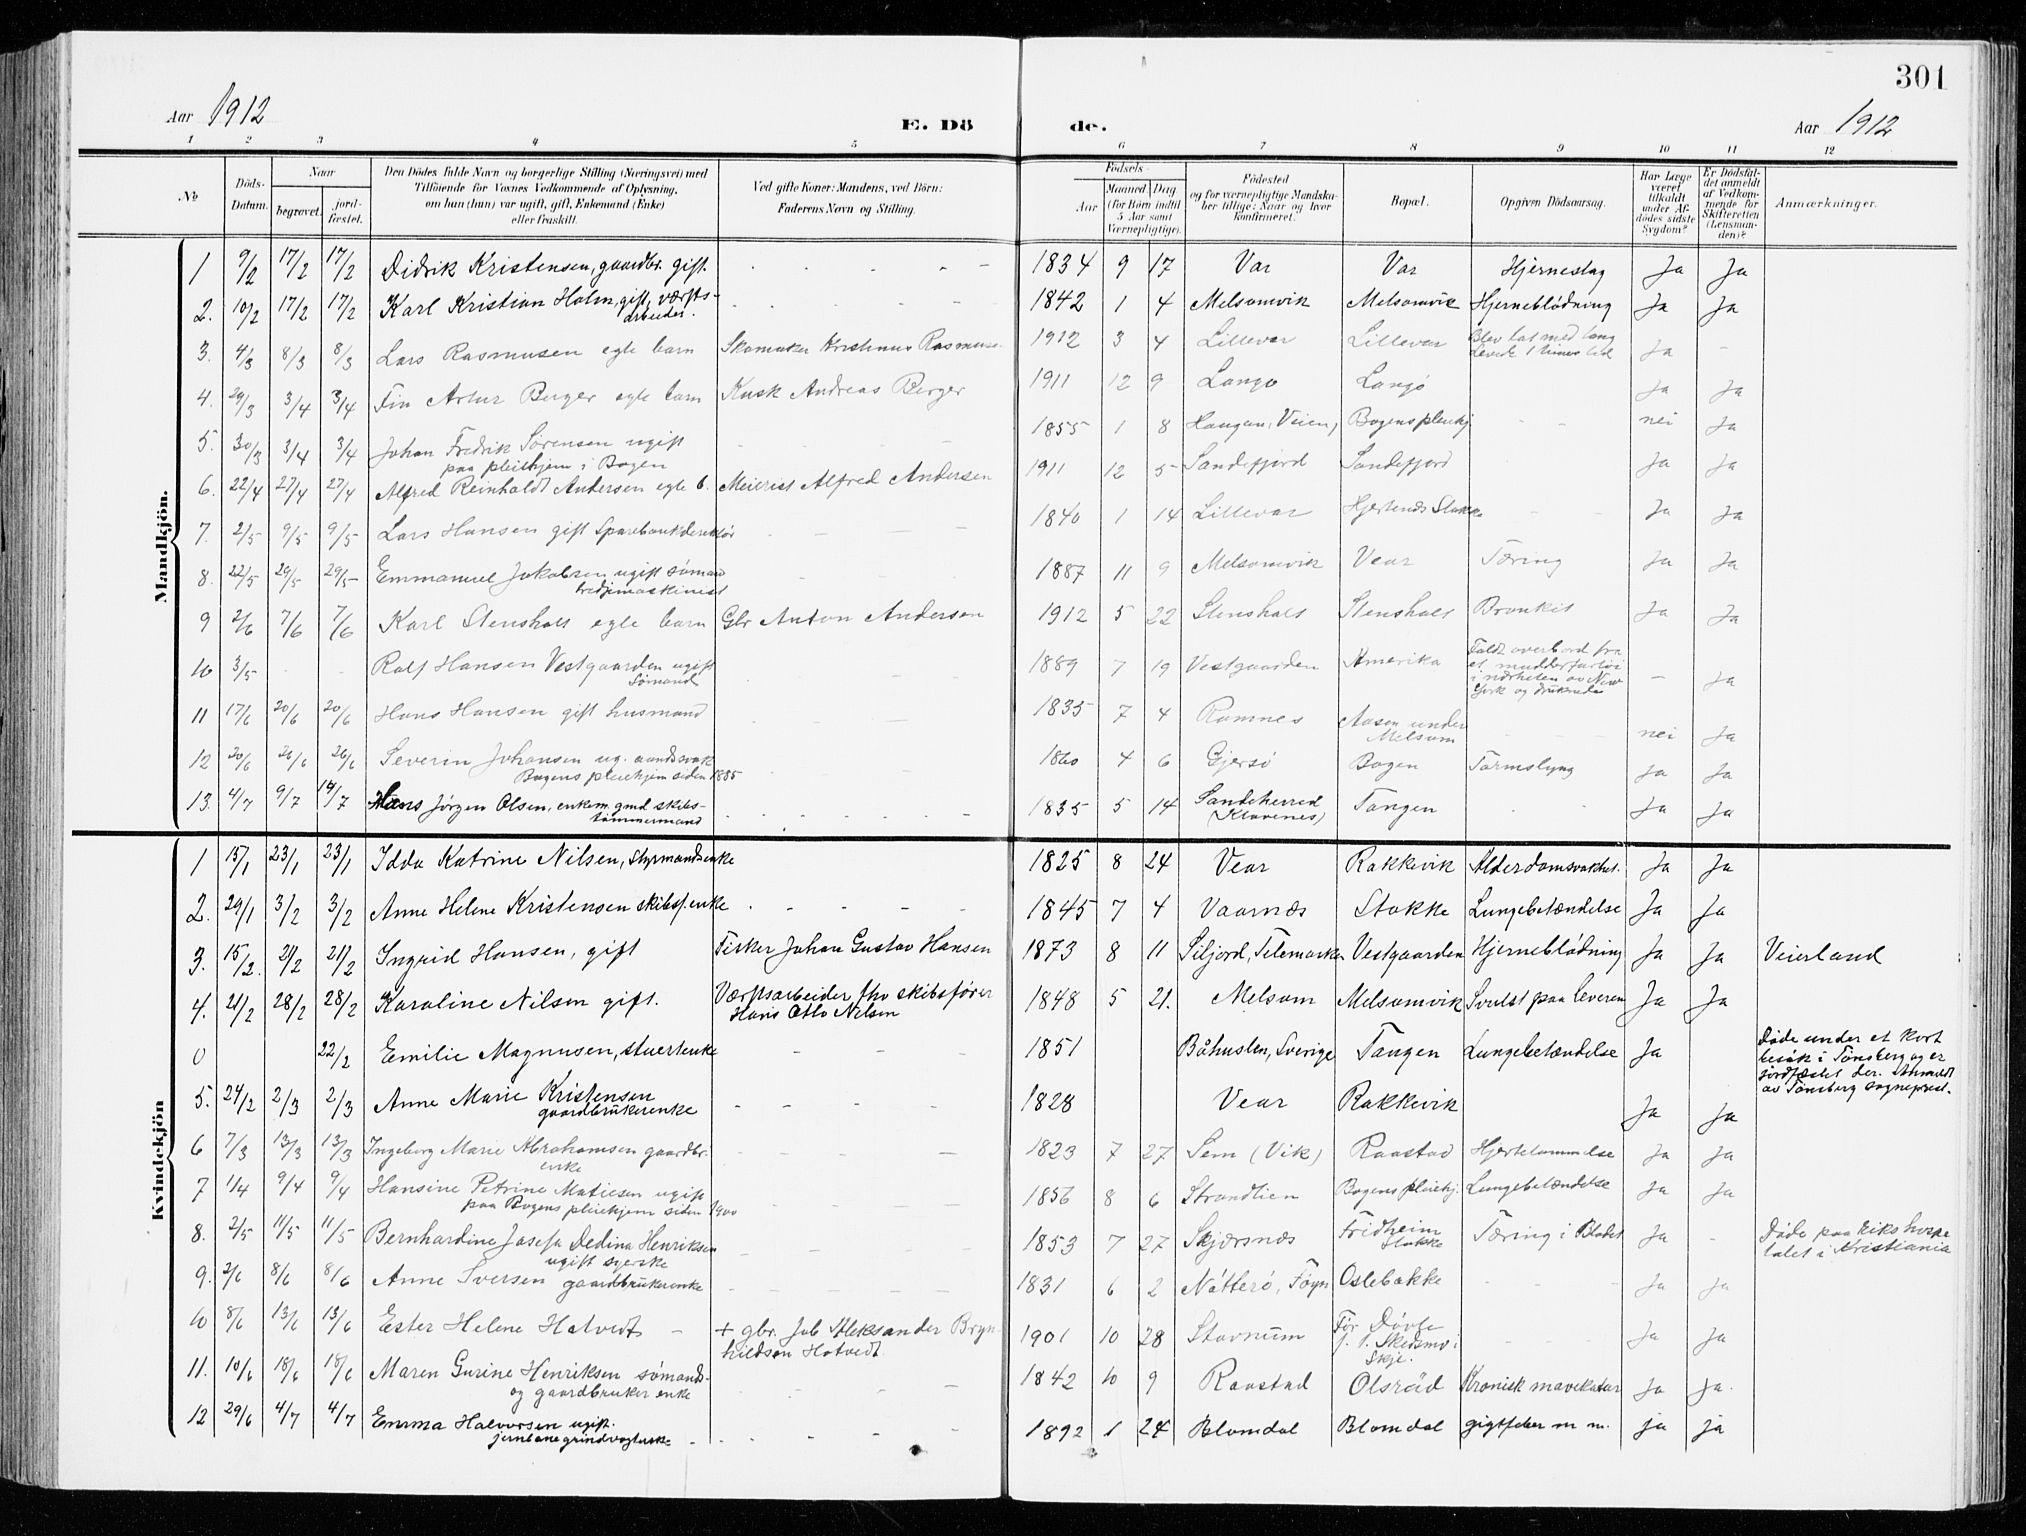 301
Aar 1912 E. Dö de. Aar 1912
1 2 3 4 5 6 7 8 9 10 11 12
No
Döds-Datum.
Naar
begravet.
jord-fæstet.
Den Dödes fulde Navn og borgerlige Stilling (Næringsvei) med
Tilföiende for Voxnes Vedkommende af Oplysning,
om han (hun) var ugift, gift, Enkemand (Enke)
eller fraskilt.
Ved gifte Koner: Mandens, ved Börn:
Faderens Navn og Stilling.
Födsels-
Aar
Maaned. Dag.
(for Börn indtil
5 Aar samt
Værnepligtige).
Födested
og for værnepligtige Mandska-
ber tillige: Naar og hvor
konfirmeret.
Bopæl.
Opgiven Dödsaarsag.
Har Læge
været
tilkaldt
under Af-
dödes sidste
Sygdom?
Er Dödsfal-
det anmeldt
af Vedkom-
mende for
Skifteretten
(Lensman-
den)?
Anmærkninger.
Mandkjön.
1 9/2 17/2 17/2 Didrik Kristensen, gaardbr. gift. 1834 9 17 Var Var Hjerneslag Ja Ja
2. 10/2 17/2 17/2 Karl Kristian Holm, gift, værfts-
arbeider. 1842 1 4 Melsomvik Melsomvik Hjerneblödning Ja Ja
3. 4/3 8/3 8/3 Lars Rasmusen egte barn Skomaker Kristinus Rasmuse 1912 3 4 Lillevar Lillevar Blev tat med tang
Levde 1 times tid Ja -
4. 29/3 3/4 3/4 Fin Artur Berger egte barn Kusk Andreas Berger 1911 12 9 Langö Langö Ja Ja
5. 30/3 3/4 3/4 Johan Fredrik Sörensen ugift
paa pleiehjem i Bogen 1855 1 8 Haugan, Veien, Bogens pleiehj nei Ja
6. 22/4 27/4 27/4 Alfred Reinholdt Andersen egte b. Meierist Alfred Andersen 1911 12 5 Sandefjord Sandefjord Ja Ja
7. 2/5 9/5 9/5 Lars Hansen gift Sparebankdirektör 1840 1 14 Lillevar Hjertnes Stokke Ja Ja
8. 22/5 29/5 29/5 Emmanuel Jakobsen ugift sömand
tredjemaskinist 1887 11 9 Melsomvik Vear Tæring Ja Ja
9 2/6 7/6 7/6 Karl Stensholt egte barn Gbr Anton Andersen 1912 5 22 Stensholt Stensholt Bronkit Ja Ja
10 3/5 Rolf Hansen Vestgaarden ugift
Sömand 1889 7 19 Vestgaarden Amerika Faldt overbord fra
et mudderfartöi
i nærheten av New
York og druknede - Ja
11 17/6 20/6 20/6 Hans Hansen gift husmand 1835 7 4 Ramnes Aasen under
Melsom nei Ja
12 20/6 26/6 26/6 Severin Johansen ug. aandssvak
Bogens pleiehjem siden 1885 1860 4 6 Gjersö Bogen Tarmslyng Ja Ja
13. 4/7 9/7 14/7 Hans Jörgen Olsen, enkem. gmd skibs-
tömmermand 1835 5 14 Sandeherred
(Klavenes) Tangen Ja Ja
Kvindekjön
1 15/1 23/1 23/1 Idda Katrine Nilsen, Styrmandsenke 1825 8 24 Vear Rakkevik Alderdomsvakhet. Ja Ja
2. 29/1 3/2 3/2 Anne Helene Kristensen skibsf.enke 1845 7 4 Vaarnæs Stokke Lungebetændelse Ja Ja
3. 15/2. 21/2 21/2 Ingrid Hansen, gift Fisker Johan Gustav Hansen 1873 8 11 Siljord, Telemarken Vestgaarden Hjerneblödning Ja Ja Veierland
4. 21/2 28/2 28/2 Karoline Nilsen gift. Værftsarbeider fhv skibsförer
Hans Otto Nilsen 1848 5 21. Melsom Melsomvik Svulst paa leveren Ja Ja
0 22/2 Emilie Magnusen, stuertenke 1851 Båhuslen, Sverige Tangen Lungebetændelse Ja Döde under et kort
besök i Tönsberg og er
jordfæstet der. Anmeldt
av Tönsberg sogneprest.
5. 24/2 2/3 2/3 Anne Marie Kristensen
gaardbrukerenke 1828 Vear Rakkevik Ja Ja
6 7/3 13/3 13/3 Ingeborg Marie Abrahamsen gaardbr.
enke 1823 7 27 Sem (Vik) Raastad Hjertelammelse Ja Ja
7 1/4 9/4 9/4 Hansine Petrine Matiesen ugift
paa Bogens pleiehjem siden 1900 1856 8 6 Strandlien Bogens pleiehj. Lungebetændelse Ja Ja
8. 2/5 11/5 11/5 Bernhardine Josefa Dedina Henriksen
ugift syerske 1853 7 27 Skjærsnæs Fridheim
Stokke Tæring i Blodet Ja - Döde paa Rikshospi
talet i Kristiania
9. 2/6 8/6 8/6 Anne Iversen gaardbrukerenke 1831 6 2 Nötterö, Föyn Oslebakke Ja Ja
10 8/6 13/6 13/6 Ester Helene Hotvedt + gbr. Jak Aleksander Bryn
hildsen Hotvedt 1901 10 28 Stavnum För Døvle
f. t. Skedsmo i
Skje. Ja Ja
11. 10/6 18/6 18/6 Maren Gurine Henriksen sömands-
og gaardbruker enke 1842 10 9 Raastad Olsröd Kronisk mavekatar Ja Ja.
12 29/6 4/7 4/7 Emma Halvorsen ugift.
jernbanegrindvogterske 1892 1 24 Blomdal Blomdal gigtfeber m m. ja ja